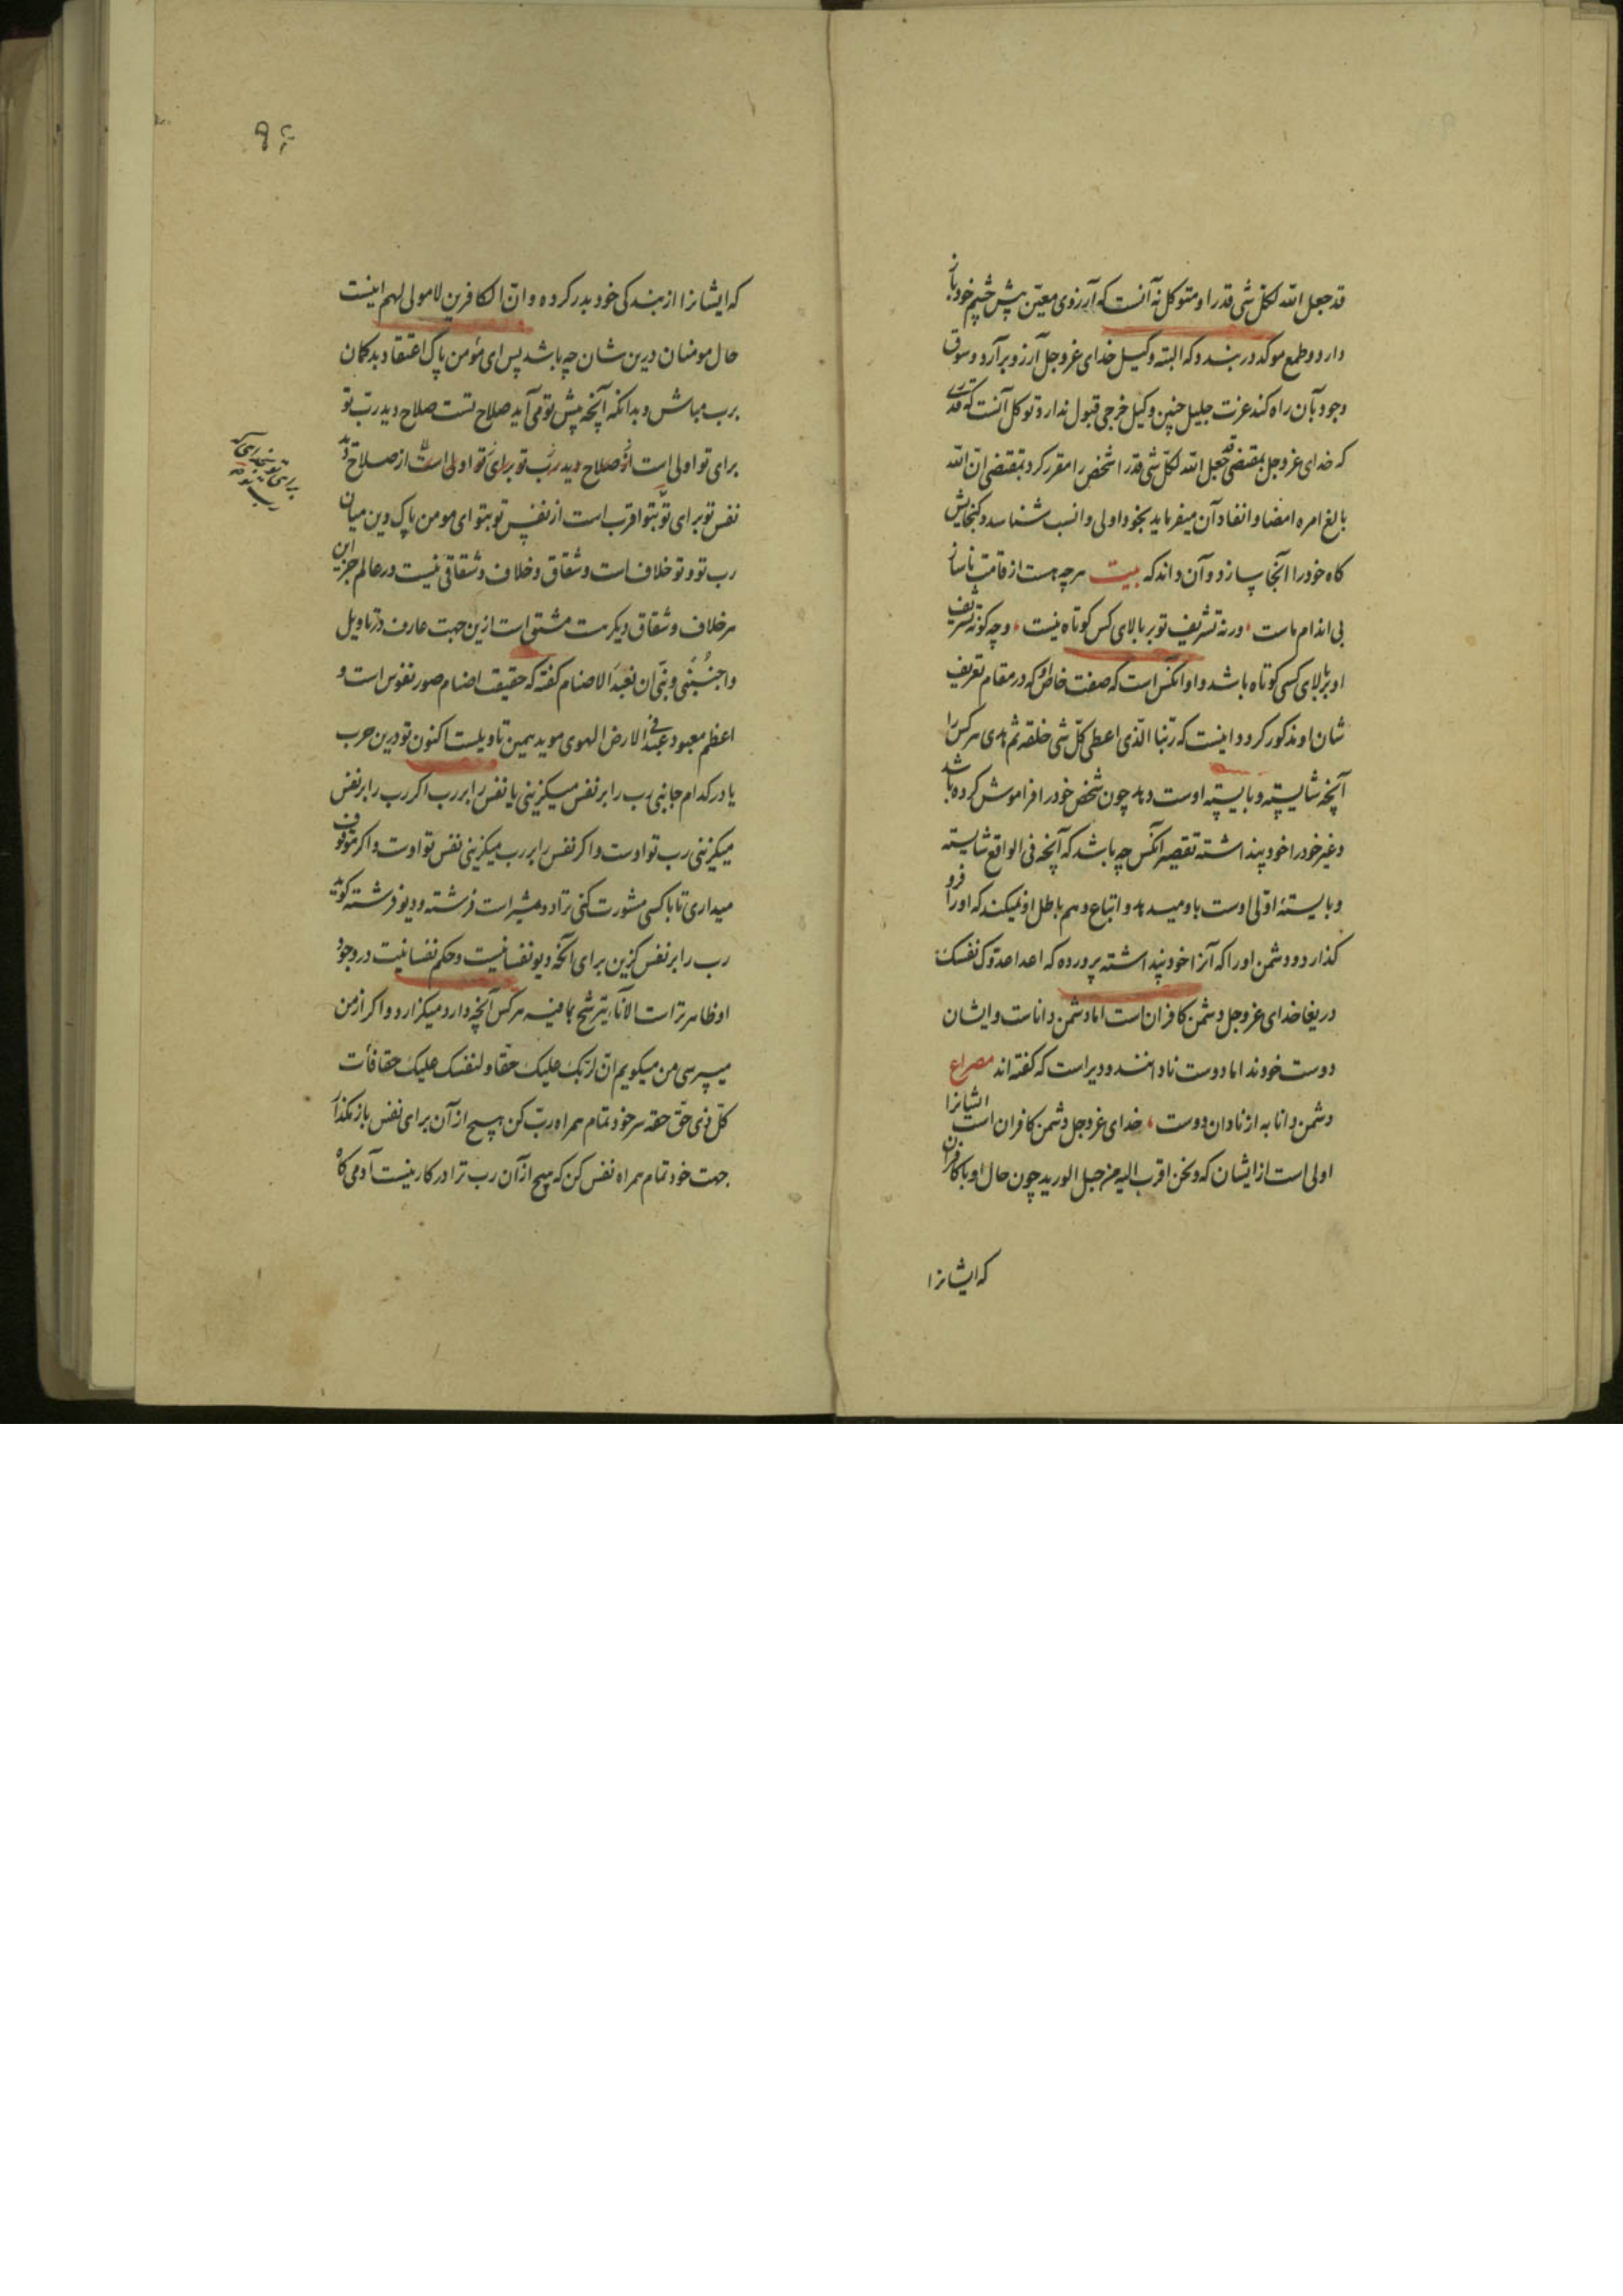 قد جعل الله لکل شی قدرا و متوکل نه آنست که آرزوی معین پیش چشم خود باز
دارد و طمع موکد در بندد که البته وکیل خدای عز و جل آرزو برآرد و سوق
وجود بآن راه کند عزت جلیل چنین وکیل خرجی قبول ندارد توکل آنست که قدری
که خدای عز و جل بمقتضی قد جعل الله لکل شی قدرا شخص را مقرر کرد بمقتضی ان الله
بالغ امره امضا و انفاد آن میفرماید بخود اولی و انسب شناسد و کنجایش
کاه خود را آنجا سازد و آن داند که بیت هرچه هست از قامت ناساز
بی اندام ماست ورنه تشریف تو بر بالای کس کوتاه نیست و چه کونه تشریف
او بر بالای کسی کوتاه باشد و او آنکس است که صفت خاص او که در مقام تعریف
شان او مذکور کردد اینست که ربنا الذی اعطی کل شی خلقه ثم هدی هرکس را
آنچه شایسته و بایسته اوست دهد چون شخص خود را فراموش کرده باشد
و غیر خود را خود پنداشته تقصیر آنکس چه باشد که آنچه فی الواقع شایسته
و بایسته اوست باو میدهد و اتباع وهم باطل او نمیکند که او را فرو
کذارد و دشمن او را که آنرا خود پنداشته پرورده که اعدا عدوک نفسک
دریغا خدای عز و جل دشمن کافران است اما دشمن داناست و ایشان
دوست خودند اما دوست نادانند و دیر است که کفته اند مصراع
دشمن دانا به از نادان دوست خدای عز و جل دشمن کافران است ایشانرا
اولی است از ایشان که و نحن اقرب الیه من حبل الورید چون حال او با کافران
که ایشانرا
که ایشانرا از بندکی خود بدر کرده و ان الکافرین لا مولی لهم اینست
حال مومنان درین شان چه باشد پس ای مؤمن پاک اعتقاد بدکمان
برب مباش و بدانکه آنچه پیش تو می آید صلاح تست صلاح دید رب تو
برای تو اولی است از صلاح دید رب تو برای تو اولی است از صلاح دید
نفس تو برای تو بتو اقرب است از نفس تو بتو ای مومن پاک دین میان
رب تو و تو خلاف است و شقاق و خلاف و شقاقی نیست در عالم جز این
هر خلاف و شقاق دیکر هست مشتق است ازین جهت عارف در تاویل
واجنبنی و بنی ان نعبد الاصنام کفته که حقیقت اصنام صور نفوس است و
اعظم معبود عبد فی الارض الهوی موید همین تاویلست اکنون تو درین حرب
یا در کدام جانبی رب را بر نفس میکزینی یا نفس را بر رب اکر رب را بر نفس
میکزینی رب تو اوست و اکر نفس را بر رب میکزینی نفس تو اوست و اکر توقف
میداری تا با کسی مشورت کنی ترا دو مشیر است فرشته و دیو فرشته کوید
رب را بر نفس کزین برای آنکه دیو نفسانیست و حکم نفسانیت در وجود
او ظاهرتر است الاناء یترشح بما فیه هرکس آنچه دارد میکزارد و اکر از من
میپرسی من میکویم ان لربک علیک حقا و لنفسک علیک حقا فأت
کل ذی حق حقه سر خود تمام همراه رب کن هیچ از آن برای نفس باز مکذار
جهت خود تمام همراه نفس کن که هیچ از آن رب ترا در کار نیست آدمی کاه